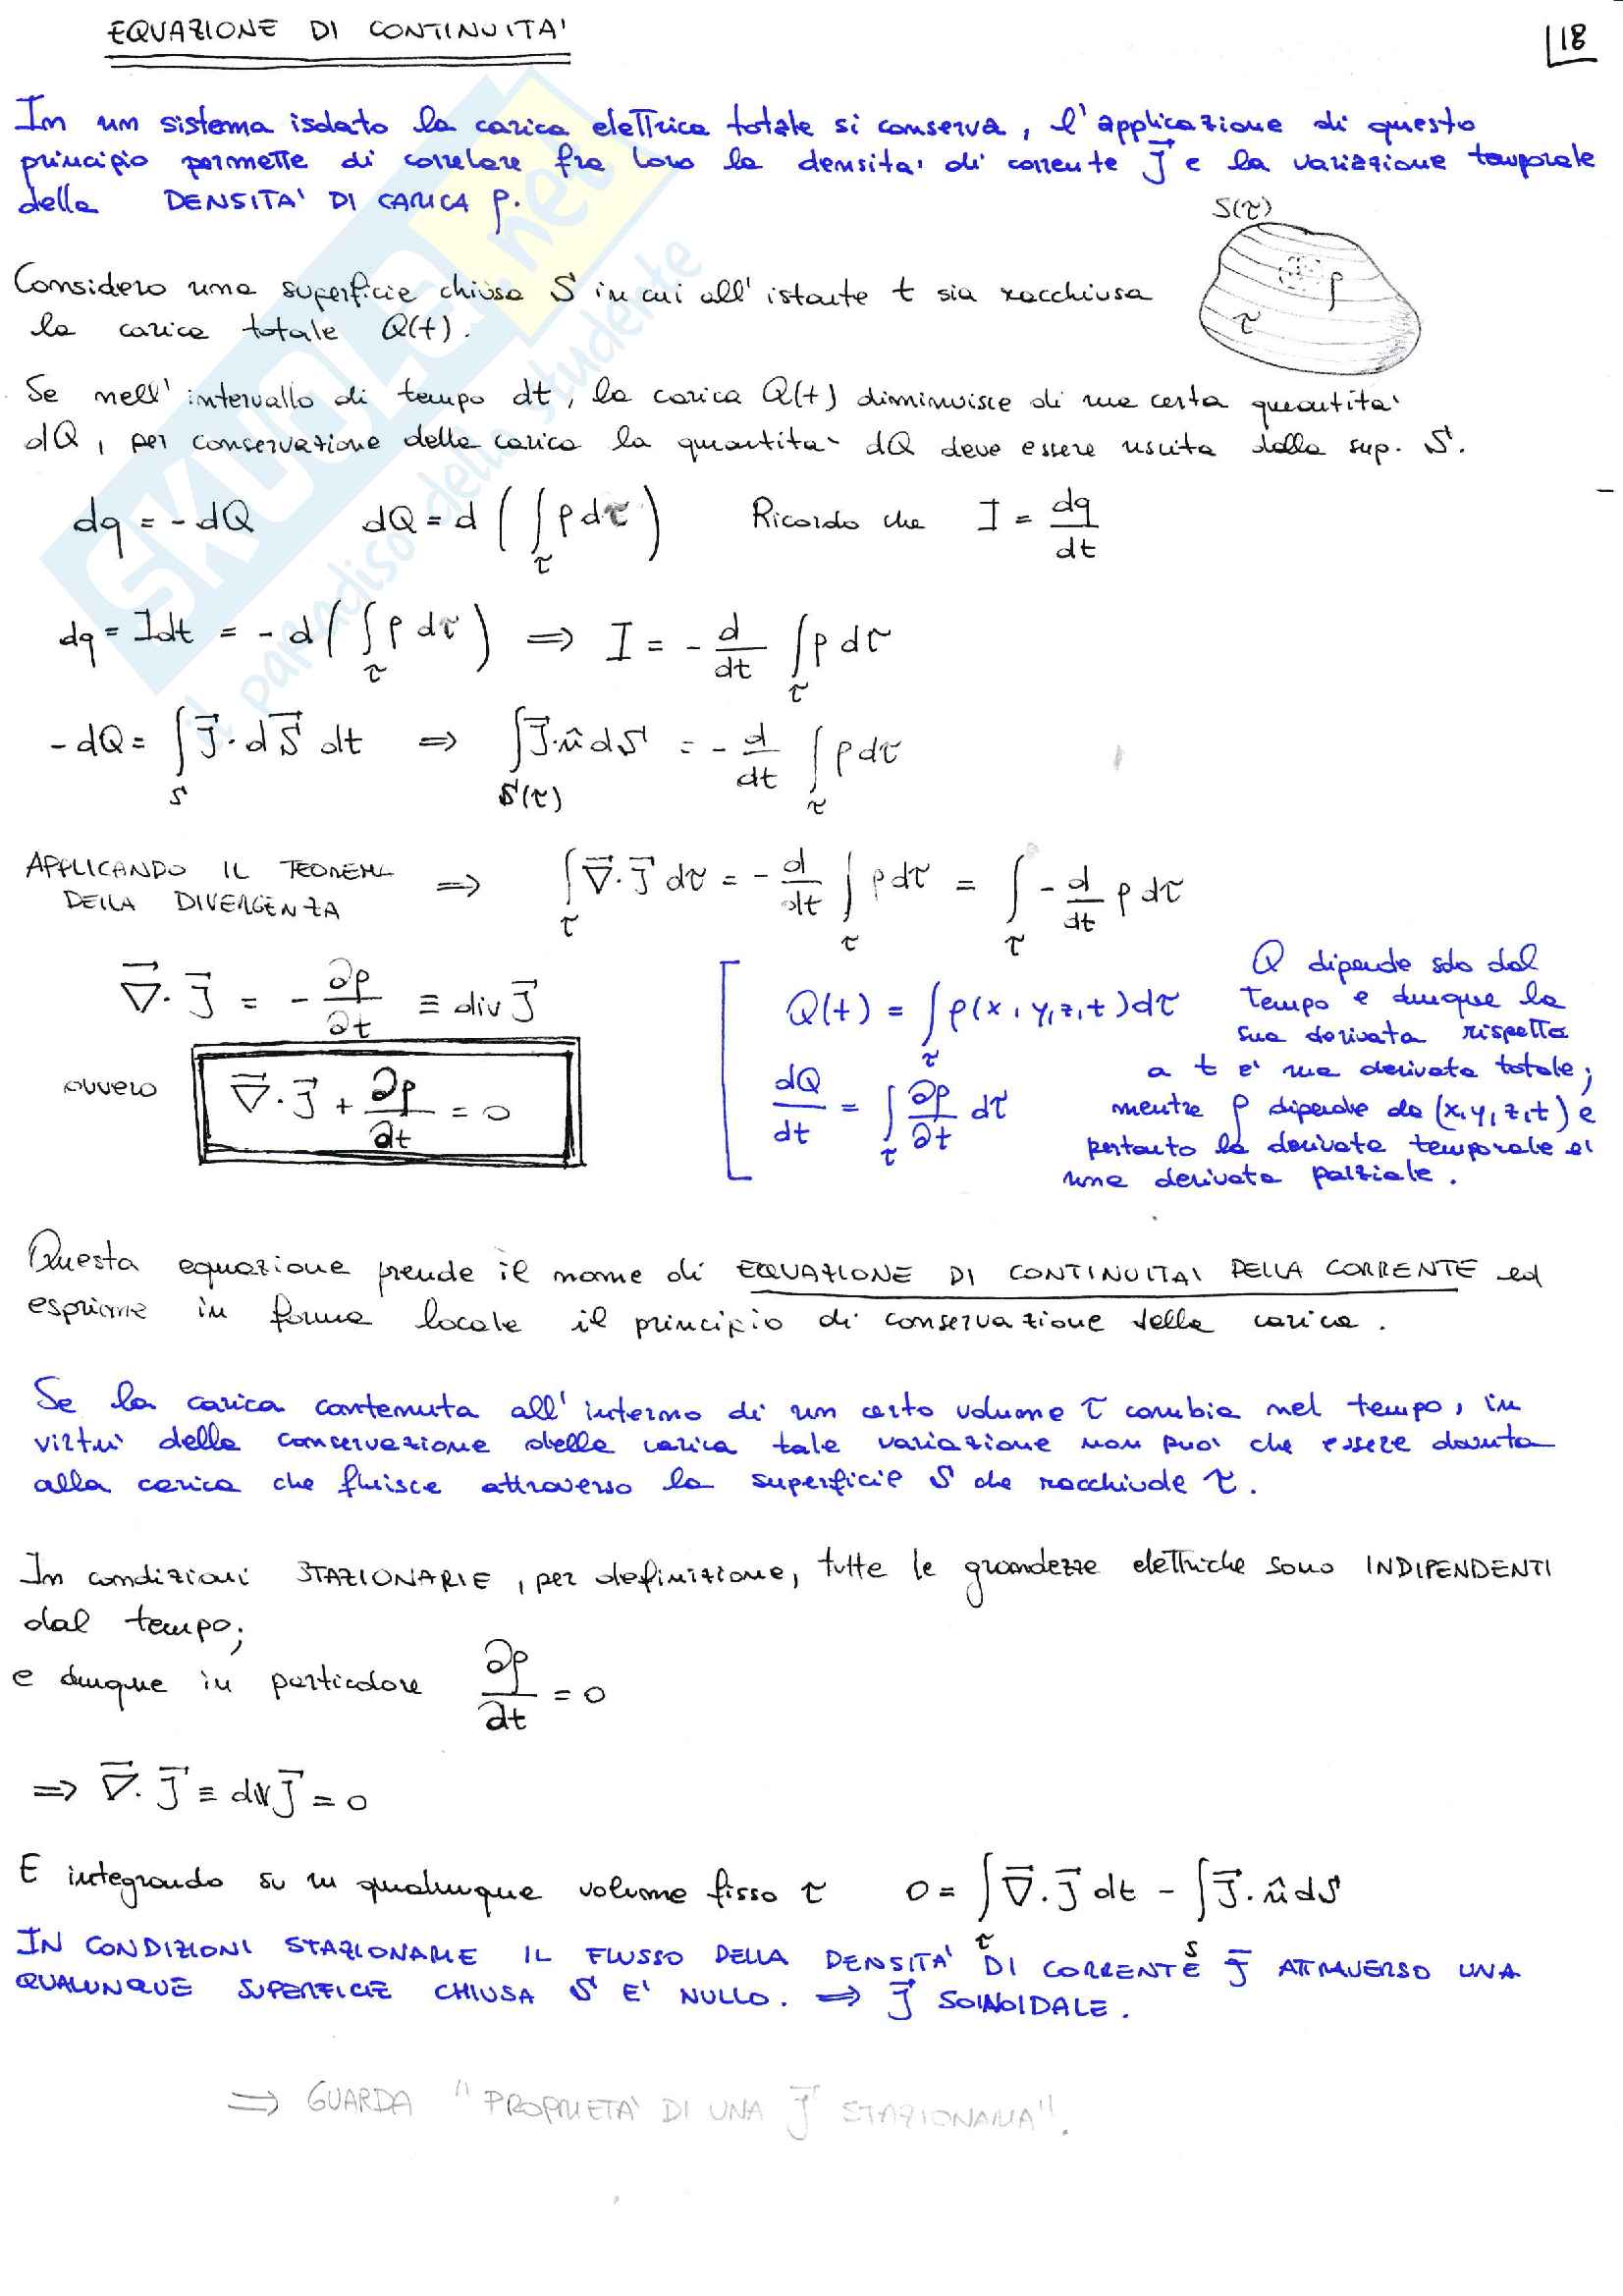 EQUAZIONE DI CONTINUITA'
18
In un sistema isolato la carica elettrica totale si conserva, l'applicazione di questo
principio permette di correlare fra loro la densita' di corrente J⃗ e la variazione temporale
della DENSITA' DI CARICA ρ.
S(τ)
ρ
τ
Considero una superficie chiusa S in cui all'istante t sia racchiusa
la carica totale Q(t).
Se nell'intervallo di tempo dt, la carica Q(t) diminuisce di una certa quantita'
dQ, per conservazione della carica la quantita' dQ deve essere uscita dalla sup. S.
dq = -dQ dQ = d(∫_τ ρ dτ) Ricordo che I = dq/dt
dq = Idt = -d(∫_τ ρ dτ) ⇒ I = - d/dt ∫_τ ρ dτ
-dQ = ∫_S J⃗·dS⃗ dt ⇒ ∫_S(τ) J⃗·n̂ dS = - d/dt ∫_τ ρ dτ
APPLICANDO IL TEOREMA
DELLA DIVERGENZA ⇒ ∫_τ ∇⃗·J⃗ dτ = - d/dt ∫_τ ρ dτ = ∫_τ - d/dt ρ dτ
∇⃗·J⃗ = - ∂ρ/∂t ≡ div J⃗
ovvero ∇⃗·J⃗ + ∂ρ/∂t = 0
Q(t) = ∫_τ ρ(x,y,z,t)dτ
dQ/dt = ∫_τ ∂ρ/∂t dτ
Q dipende solo dal
tempo e dunque la
sua derivata rispetto
a t e' una derivata totale;
mentre ρ dipende da (x,y,z,t) e
pertanto la derivata temporale e'
una derivata parziale.
Questa equazione prende il nome di EQUAZIONE DI CONTINUITA' DELLA CORRENTE ed
esprime in forma locale il principio di conservazione della carica.
Se la carica contenuta all'interno di un certo volume τ cambia nel tempo, in
virtu' della conservazione della carica tale variazione non puo' che essere dovuta
alla carica che fluisce attraverso la superficie S che racchiude τ.
In condizioni STAZIONARIE, per definizione, tutte le grandezze elettriche sono INDIPENDENTI
dal tempo;
e dunque in particolare ∂ρ/∂t = 0
⇒ ∇⃗·J⃗ ≡ div J⃗ = 0
E integrando su un qualunque volume fisso τ 0 = ∫_τ ∇⃗·J⃗ dt - ∫_S J⃗·n̂ dS
IN CONDIZIONI STAZIONARIE IL FLUSSO DELLA DENSITA' DI CORRENTE J⃗ ATTRAVERSO UNA
QUALUNQUE SUPERFICIE CHIUSA S E' NULLO. ⇒ J⃗ SOLENOIDALE.
⇒ GUARDA "PROPRIETA' DI UNA J⃗ STAZIONARIA".
SKUOLA.net
il paradiso dello studente